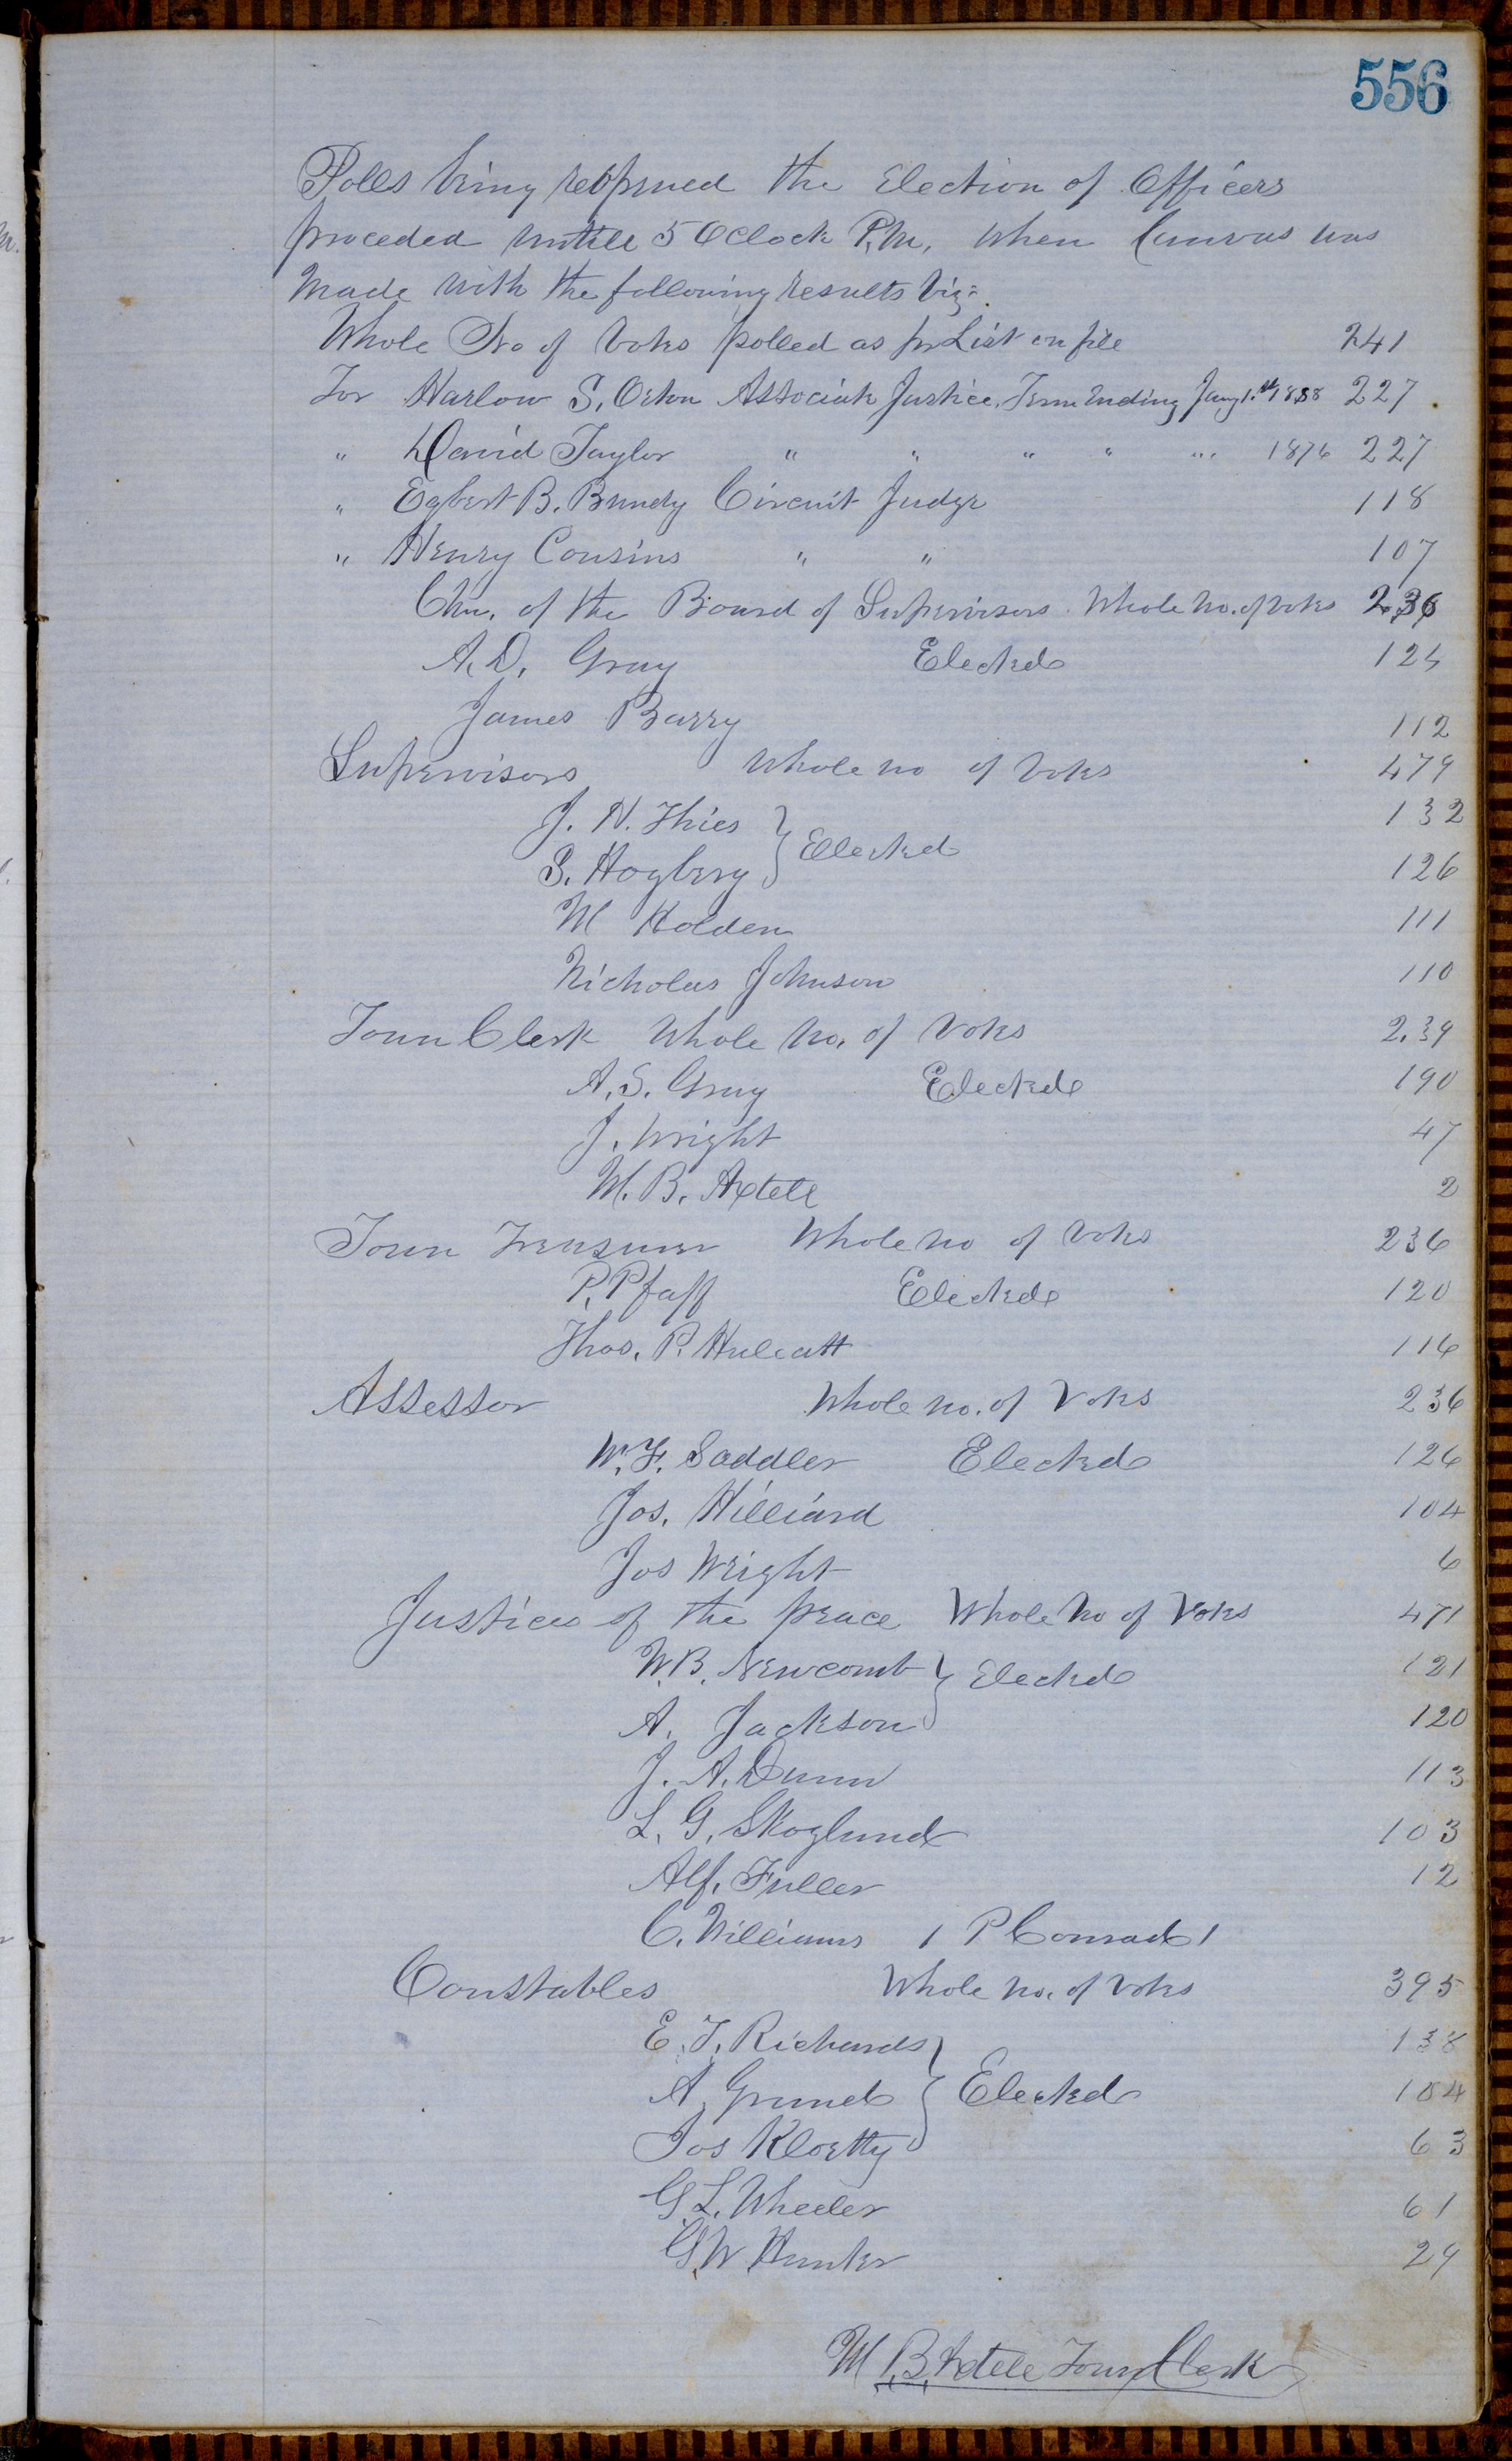 556
Polls being reopened the Election of Officers
proceded untill 5 OClock P.M, When Canvas was
Made with the following results Viz:
Whole No of Votes polled as pr List on file 241
For Harlow S. Orton Associate Justice, Term Ending Jany 1st 1888 227
" David Taylor " " " " " 1876 227
" Egbert B. Bundy Circuit Judge 118
" Henry Cousins " " 107
Chn. of the Board of Supervisors Whole No. of votes 236
A. D. Gray Elected 124
James Barry 112
Supervisors Whole no of Votes 479
J. N. Thies } Elected 132
S. Hogberg 126
M Holden 111
Nicholas Johnson 110
Town Clerk Whole No. of Votes 2.39
A. S. Gray Elected 190
J. Wright 47
M. B. Axtell 2
Town Treasurer Whole No of Votes 236
P. Pfaff Elected 120
Thos. P. Hulcatt 116
Assessor Whole no. of Votes 236
W. F. Saddler Elected 126
Jos. Hilliard 104
Jos Wright 6
Justices of the peace Whole No of Votes 471
W. B. Newcomb } Elected 121
A. Jackson 120
J. A. Dunn 113
L. G. Skoglund 103
Alf. Fuller 12
C. Williams 1 P Conrad 1
Constables Whole no. of Votes 395
E. T. Richards 138
A Grund } Elected 104
Jos Kloetty 63
G L. Wheeler 61
G W Hunter 29
M. B. Axtell Town Clerk